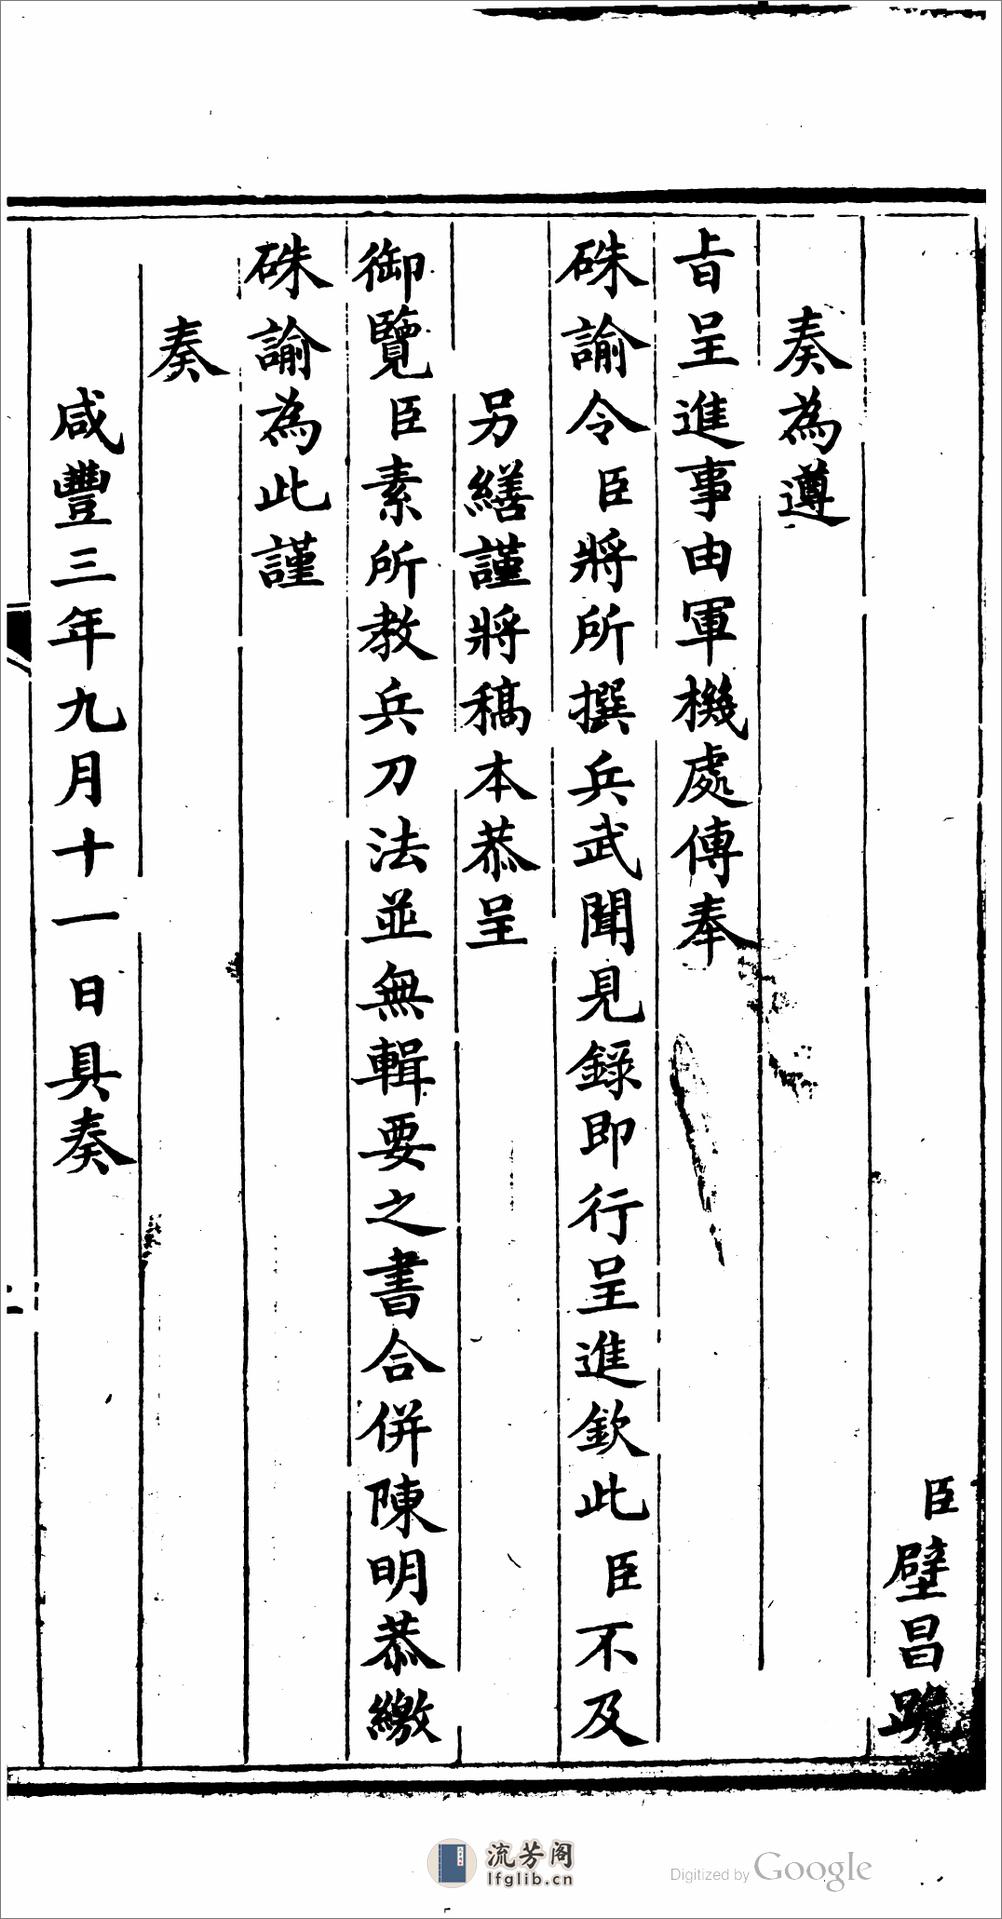 臣璧昌跪
奏為遵
旨呈進事由軍機處傳奉
硃諭令臣將所撰兵武聞見錄即行呈進欽此臣不及
另繕謹將稿本恭呈
御覽臣素所教兵刀法並無輯要之書合併陳明恭繳
硃諭為此謹
奏
咸豐三年九月十一日具奏
流芳阁
lfglib.cn
Digitized by Google